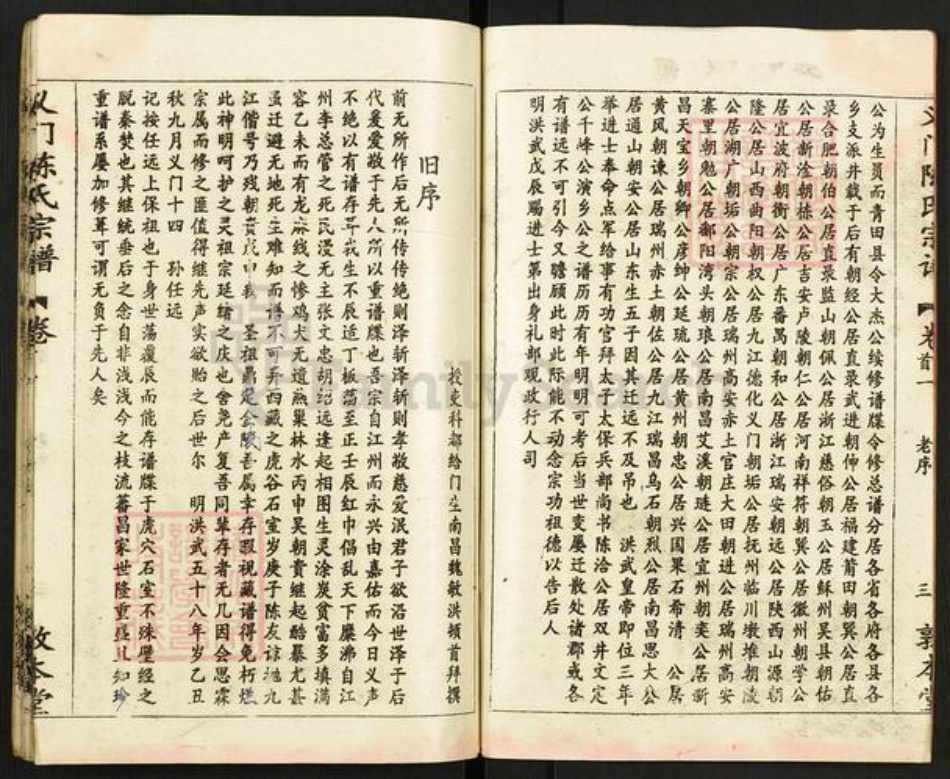 公为生员而青田县令大杰公续修谱牒令修总谱分居各省各府各县各
乡支派井载于后有朝经公居直录武进朝伸公居福建莆田朝翼公居直
录合肥朝伯公居直录监山朝佩公居浙江慈俗朝玉公居稣州吴县朝佑
公居新淦朝栋公居吉安卢陵朝仁公居河南祥符朝巽公居徽州朝学公
居宜波府朝衡公居广东番禺朝和公居浙江瑞安朝远公居陕西山源朝
隆公居山西曲阳朝权公居九江德化义门朝垢公居抚州临川墩堆朝陵
公居湖广朝垢公朝宗公居瑞州高安赤土官庄大田朝进公居瑞州高安
寨里朝勉公居鄱阳湾头朝琅公居南昌艾溪朝琏公居宜州朝奕公居新
昌天宝乡朝卿公彦绅公延琉公居黄州朝忠公居兴国果石希清 公居
黄风朝谏公居瑞州赤土朝佐公居九江瑞昌乌石朝烈公居南昌思大公
居通山朝安公居山东生五子因其迁远不及吊也 洪武皇帝即位三年
举进士奉命点军给事有功官拜太子太保兵部尚书陈洽公居双井文定
公千峰公演乡公之谱历历有年明明可考后当世变屡迁散处诸郡或各
有谱远不可引今又瞻顾此时此际能不动念宗功祖德以告后人
明洪武戊辰赐进士第出身礼部观政行人司
旧序
授吏科都给门生南昌魏敏洪顿首拜撰
前无所作后无所传传绝则泽斩泽斩则孝敬慈爱泯君子欲沿世泽于后
代爰爱敬于先人所以重谱牒也吾宗自江州而永兴由嘉佑而今日义声
不绝以有谱存耳我生不辰适丁板荡至正壬辰红巾倡乱天下糜沸自江
州李总管之死民浸无主张文忠朝绍远逢起相图生灵涂炭贫富多填满
容乙未而有龙麻线之惨鸡犬无遗燕巢林水丙申吴朝贵继起酷暴尤甚
虽迁避无地死生难知而谱不可弃西藏之虎谷石室岁庚子陈友谅据九
江僭号乃残朝贵戊申我 圣祖鼎定金陵吾属幸存叚视藏谱得免朽燬
此神明呵护之灵祖宗延绪之庆也舍尧产复吾同辈存者无几因会思霖
宗属而修之匪值得继先声实欲贻之后世尔 明洪武五十八年岁乙丑
秋九月义门十四 孙任远
记按任远上保祖也于身世荡覆辰而能存谱牒于虎穴石室不殊壁经之
脱秦焚也其继统垂后之念自非浅浅今之枝流蕃昌家世隆重盛
重谱系屡加修葺可谓无负于先人矣
卷首一
老序
三
敦本堂
义门陈氏宗谱
卷
敦本堂